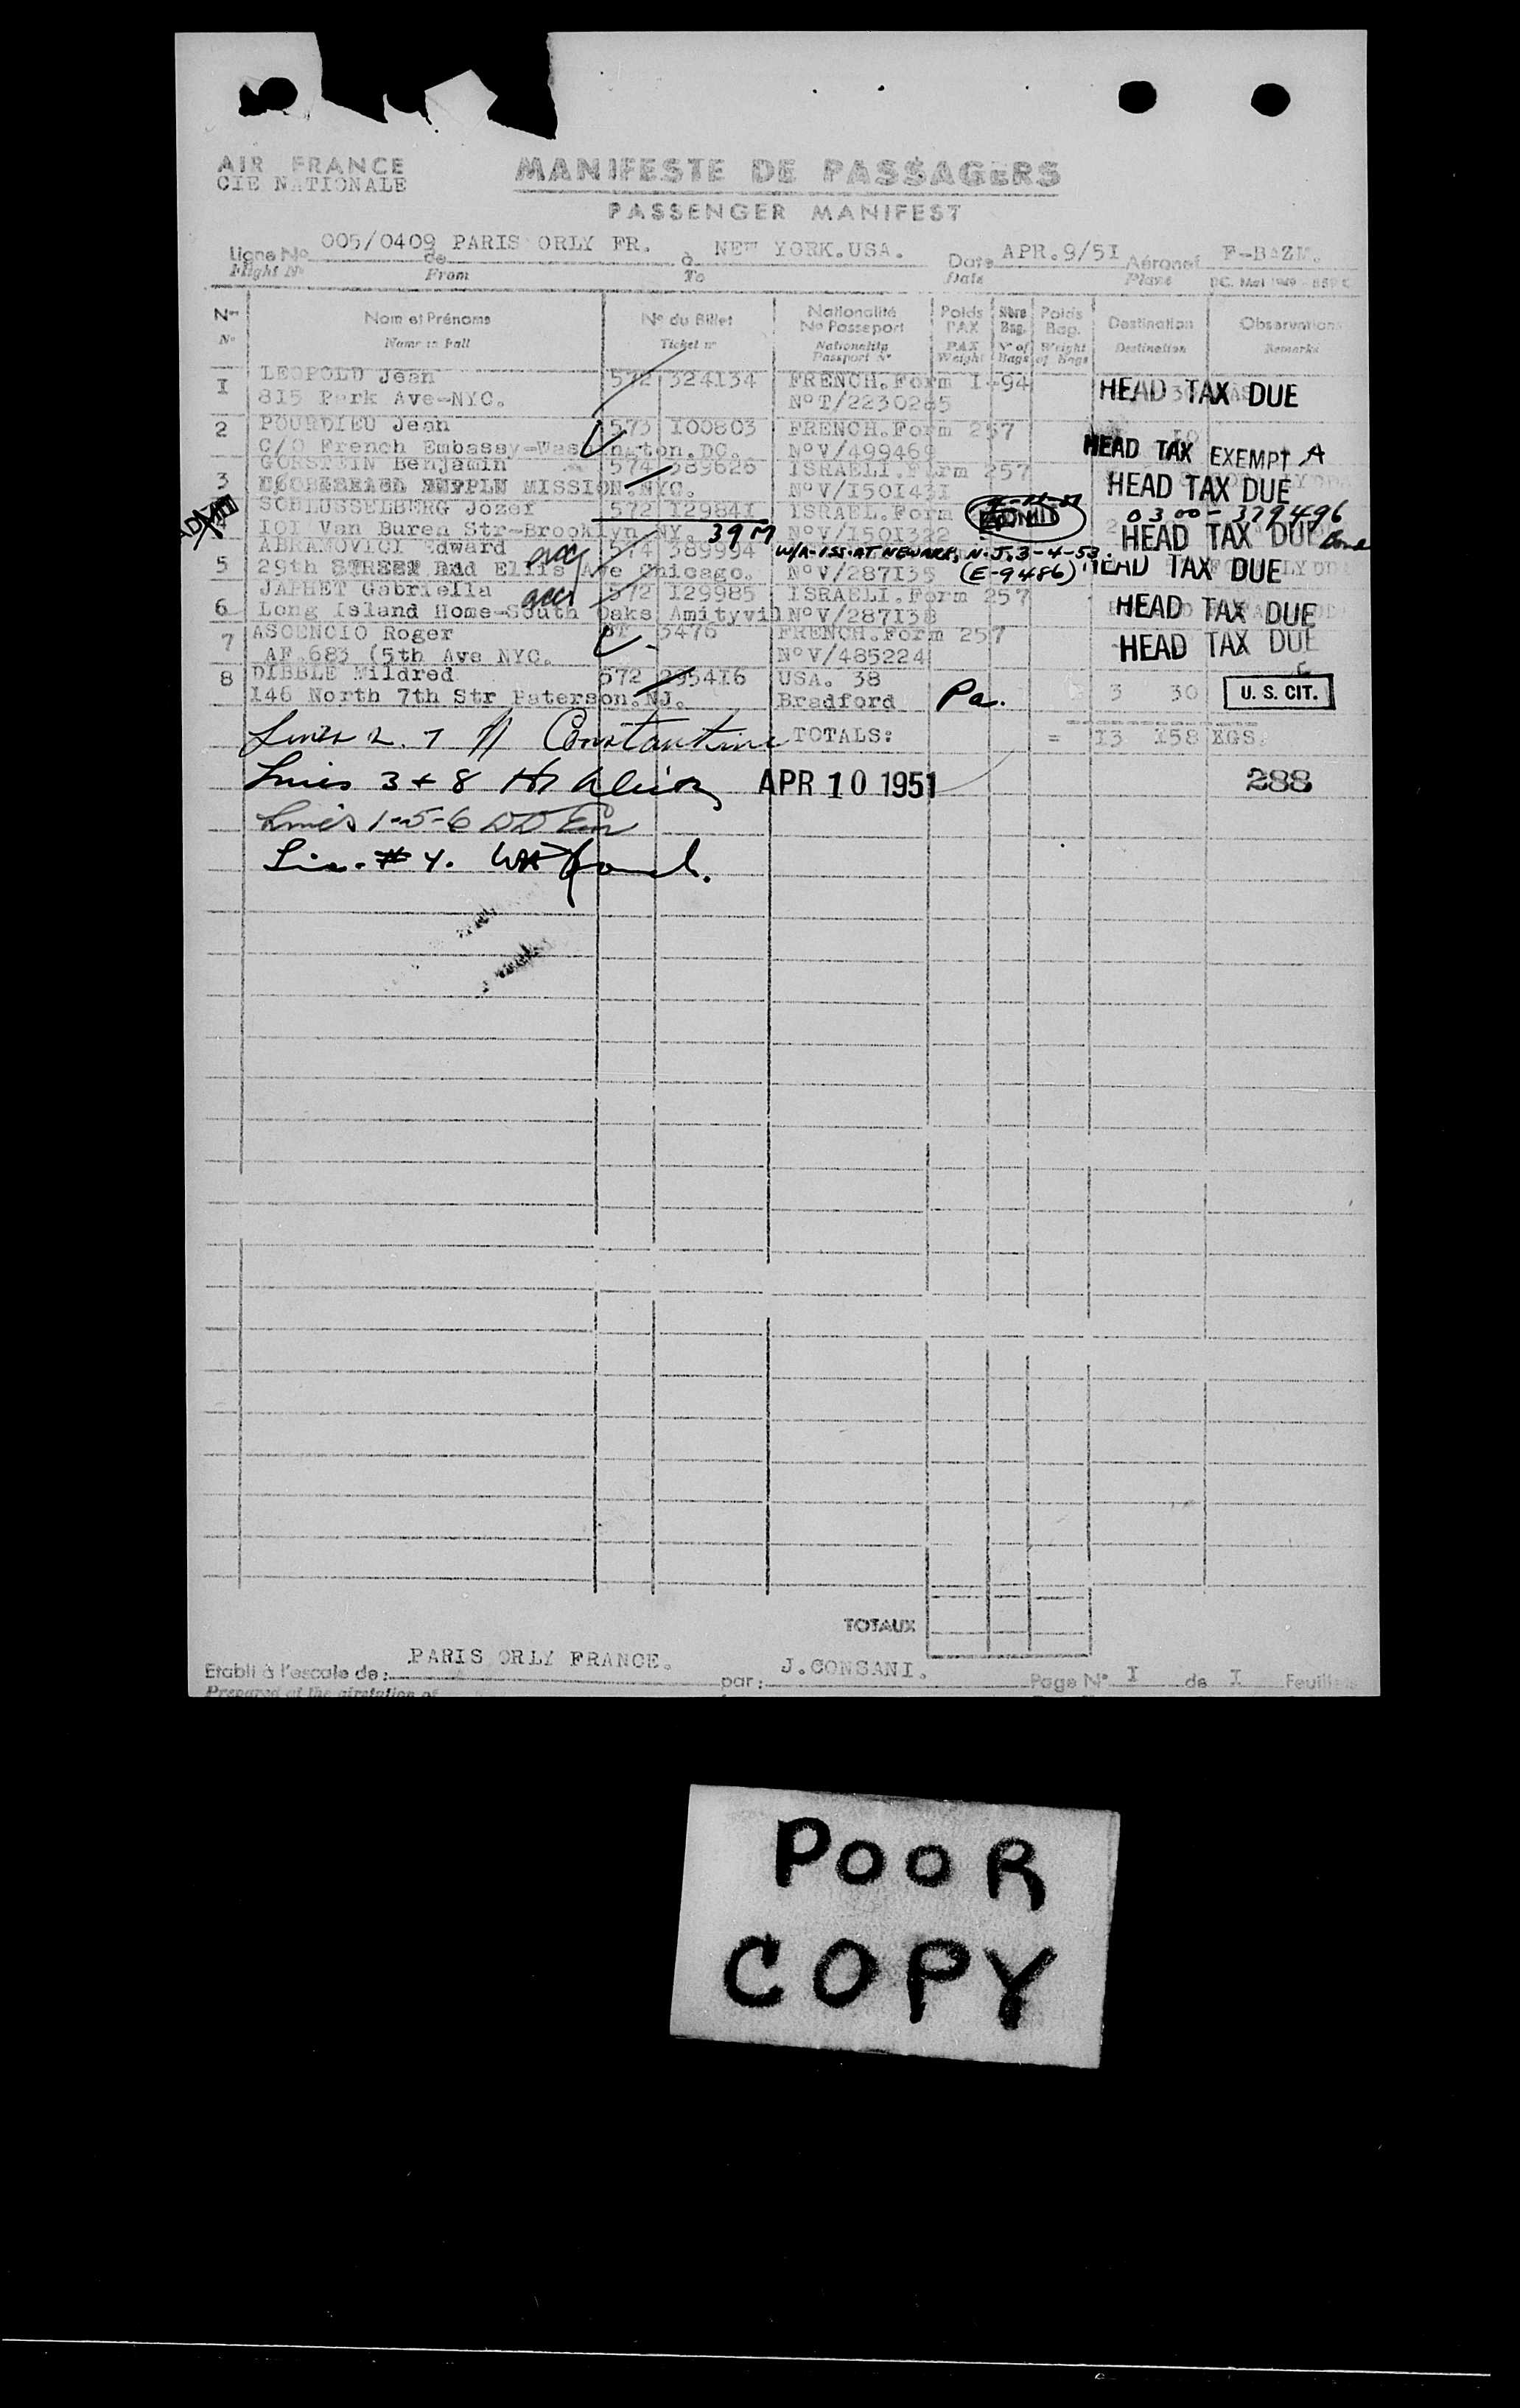 AIR FRANCE
CIE NATIONALE
MANIFESTE DE PASSAGERS
PASSENGER MANIFEST
Ligne No 005/0409 de PARIS ORLY FR. à NEW YORK.USA. Date APR.9/51 Aéronef F-BAZM.
Flight No From To Date Plane
Nos Nom et Prénoms No du Billet Nationalité No Passeport Poids PAX Nbre Bag. Poids Bag. Destination Observations
No Name in full Ticket no Nationality Passport No PAX Weight No of Bags Weight of Bags Destination Remarks
1 LEOPOLD Jean 572 324134 FRENCH.Form I-94 HEAD TAX DUE
815 Park Ave-NYC. NoT/2230285
2 POURDIEU Jean 573 100803 FRENCH.Form 257
C/O French Embassy-Washington.DC. NoV/499469 HEAD TAX EXEMPT A
3 GORSTEIN Benjamin 574 389626 ISRAELI.Form 257
MISSION.NYC. NoV/1501431 HEAD TAX DUE
SCHLUSSELBERG Jozef 572 129841 ISRAEL.Form 0300-379496
101 Van Buren Str-Brooklyn NY. 39 M NoV/1501322 HEAD TAX DUE
5 ABRAMOVICI Edward 574 389994 W/A-ISS-AT NEWARK, N.J. 3-4-53.
29th STREET And Ellis Ave Chicago. NoV/287135 (E-9486) HEAD TAX DUE
6 JAPHET Gabriella 572 129985 ISRAELI.Form 257
Long Island Home-South Oaks Amityvil NoV/287138 HEAD TAX DUE
7 ASCENCIO Roger 3476 FRENCH.Form 257
AF.683 (5th Ave NYC. NoV/485224 HEAD TAX DUE
8 DIBBLE Mildred 572 295416 USA. 38
146 North 7th Str Paterson.NJ. Bradford Pa. 3 30 U. S. CIT.
Lines 2. 7 Constantine TOTALS: = 13 158 KGS.
Lines 3 + 8 APR 10 1951 288
Lines 1-5-6
Line #4.
TOTAUX
Etabli à l'escale de: PARIS ORLY FRANCE. par: J.CONSANI. Page No I de I Feuillets
Prepared at the airstation of
POOR
COPY